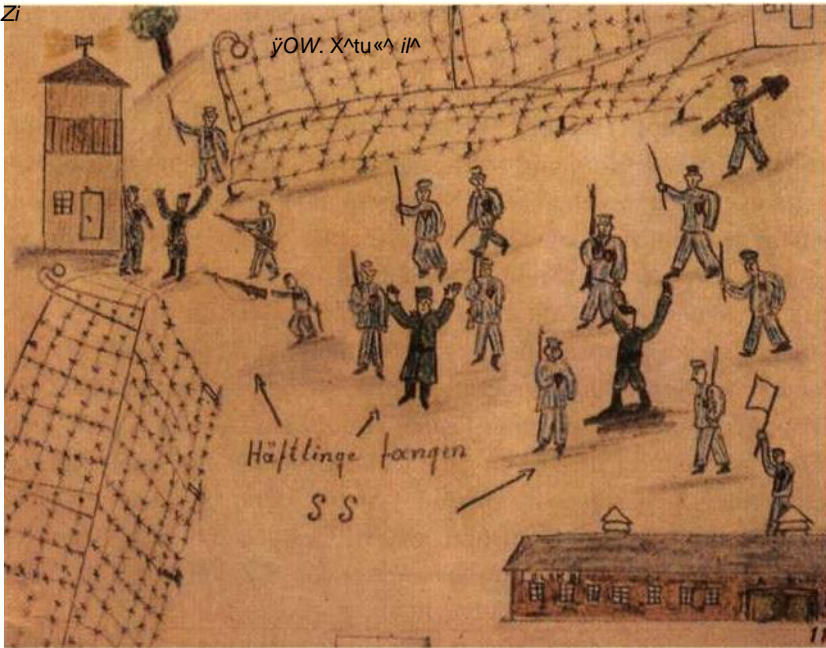 Zi
ÿOW. X^tu«^ il^
Häftlinge fangen
SS